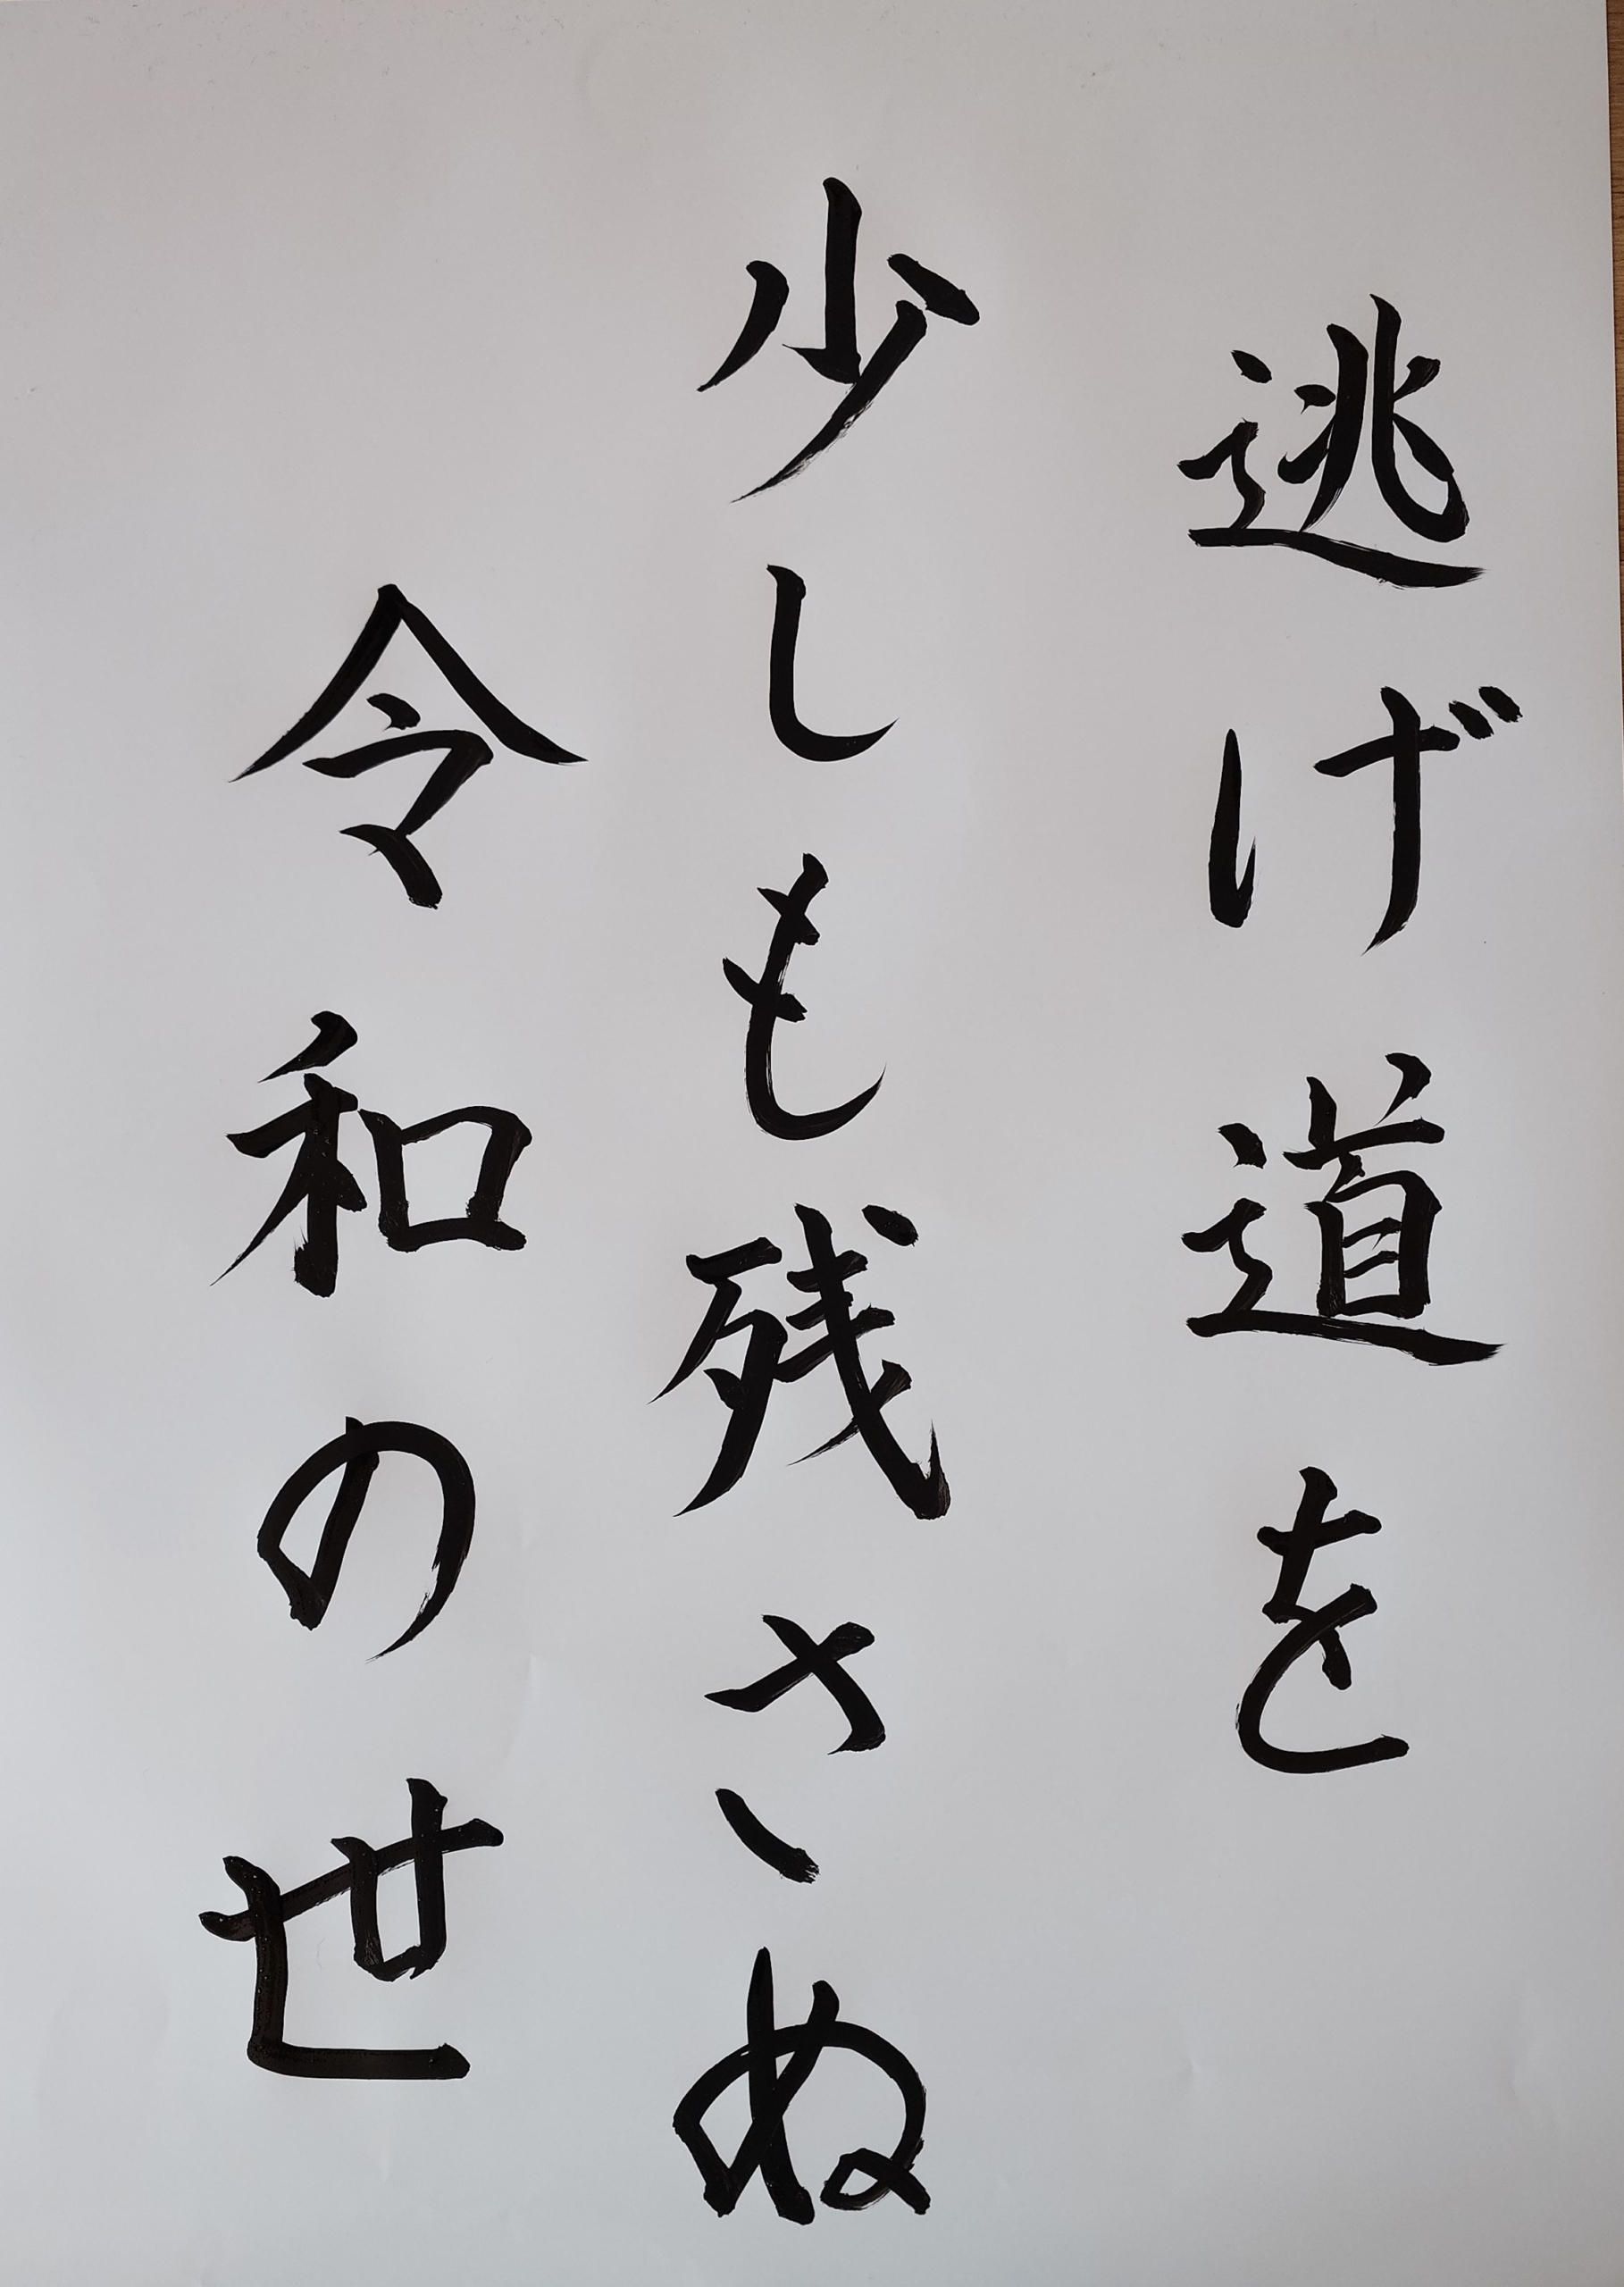 逃げ道を
少しも残さぬ
令和の世